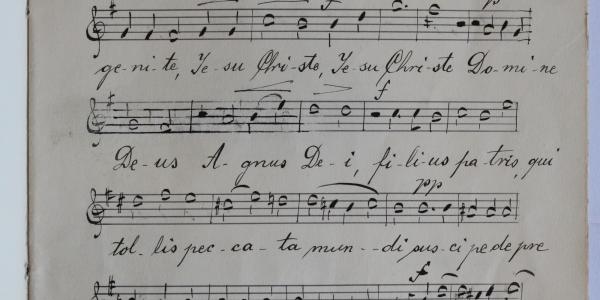 f p
ge-ni-te, Je-su Chri-ste, Je-su Chri-ste Do-mi-ne
f
De-us A-gnus De-i, fi-li-us pa-tris, qui
pp
tol-lis pec-ca-ta mun--di sus-ci pe de pre
f